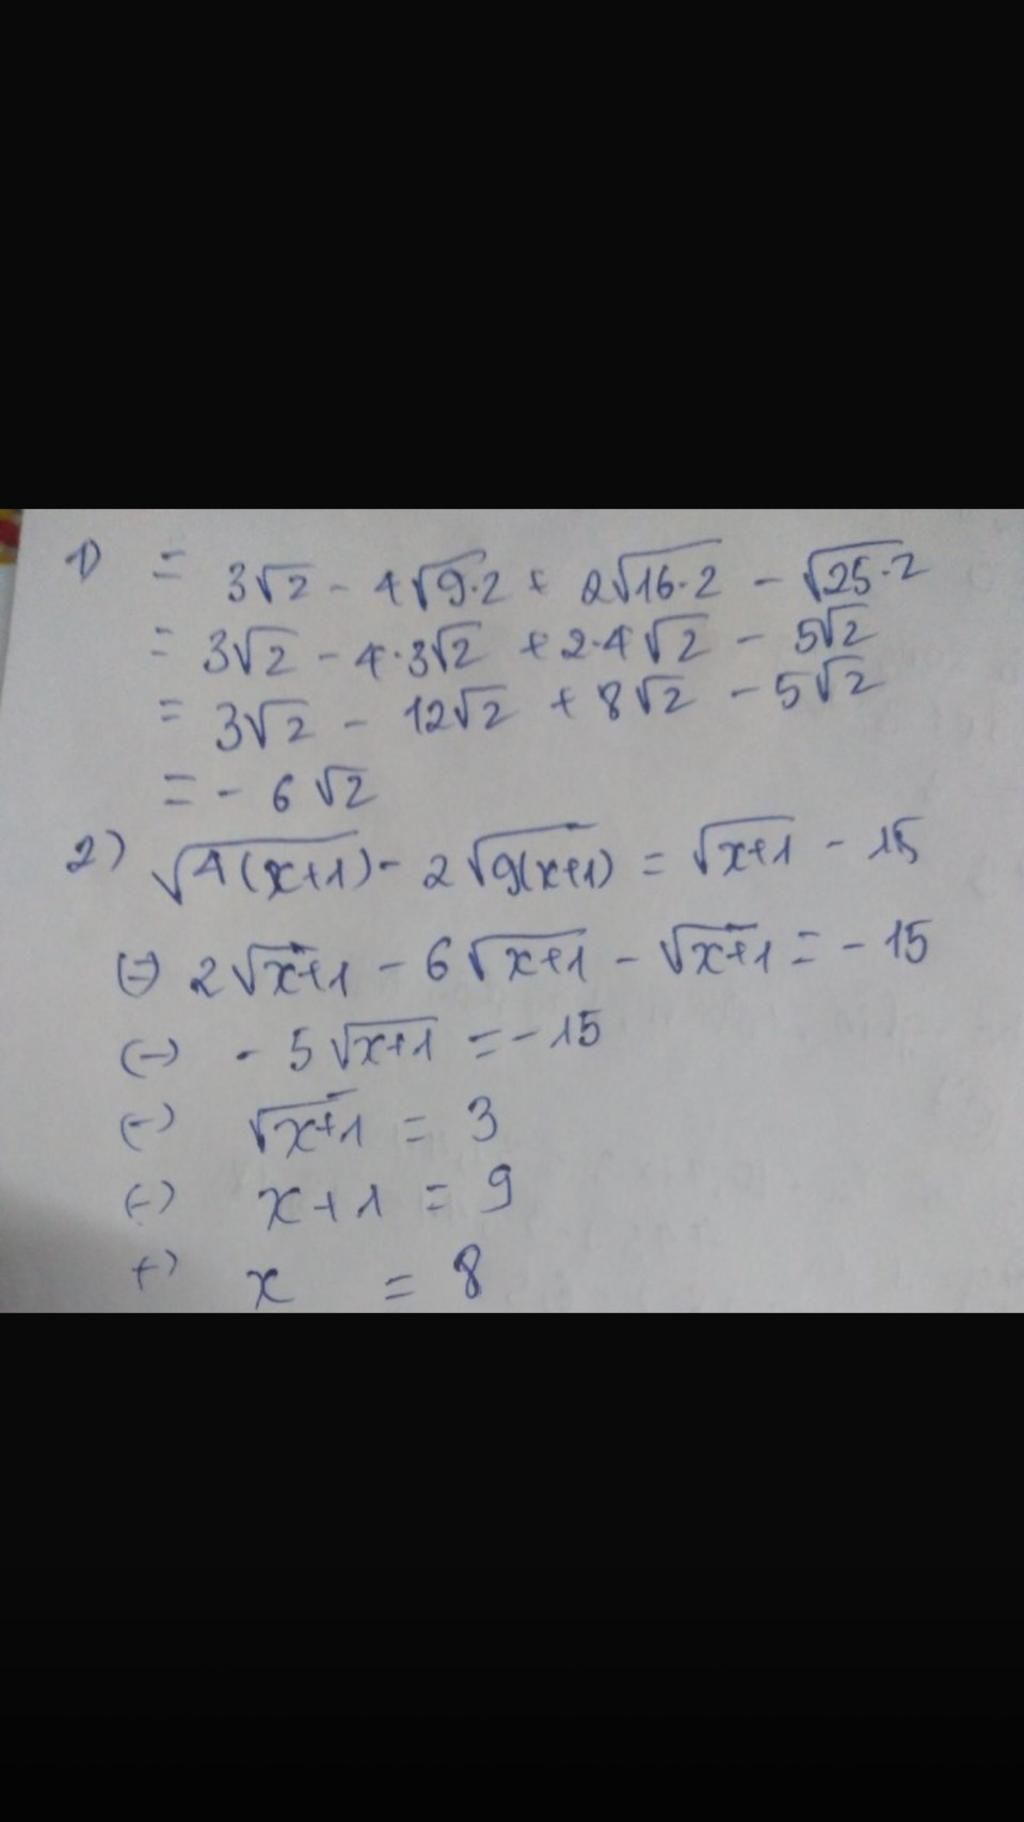 1) = 3√2 - 4√9·2 + 2√16·2 - √25·2
= 3√2 - 4·3√2 + 2·4√2 - 5√2
= 3√2 - 12√2 + 8√2 - 5√2
= - 6√2
2) √4(x+1) - 2√9(x+1) = √x+1 - 15
(=) 2√x+1 - 6√x+1 - √x+1 = - 15
(-) - 5√x+1 = - 15
(-) √x+1 = 3
(-) x+1 = 9
(-) x = 8